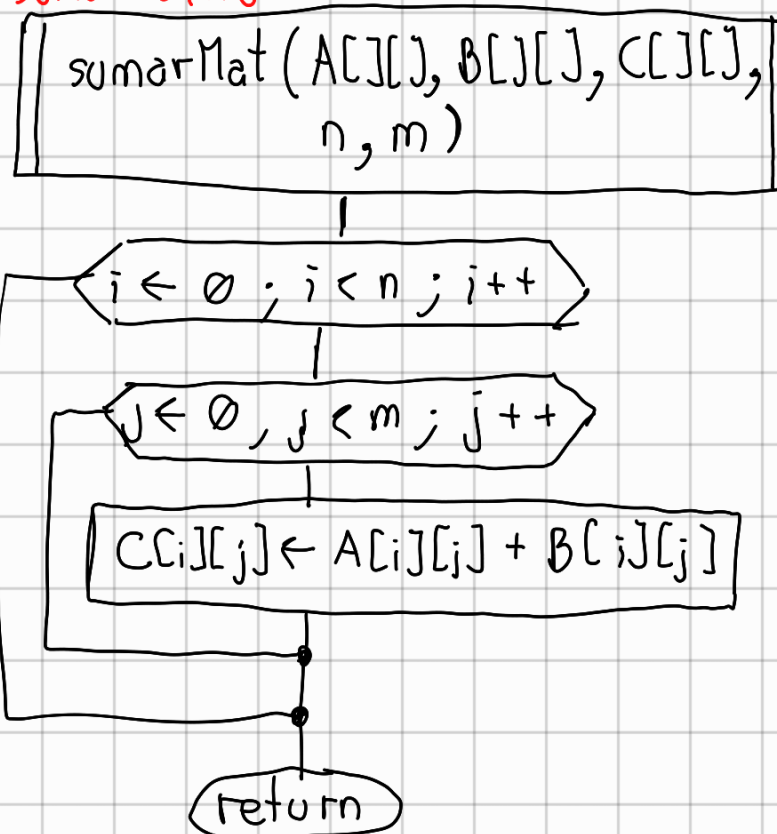 sumarMat (A[][], B[][], C[][],
n, m)
i ← 0 ; i < n ; i++
j ← 0, j < m ; j++
C[i][j] ← A[i][j] + B[i][j]
return